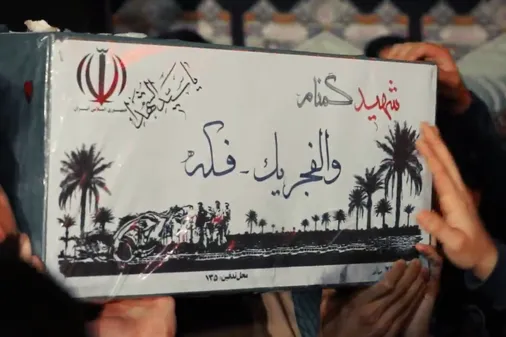 جمهوری اسلامی ایران
یا سید الشهدا
شهید گمنام
والفجر یک - فکه
محل تدفین: ۱۳۵